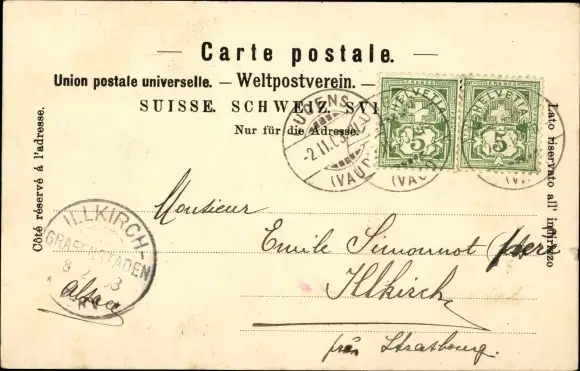 Carte postale.
Union postale universelle. — Weltpostverein. —
SUISSE. SCHWEIZ. SVI
Nur für die Adresse.
Côté réservé à l'adresse.
Lato riservato all' indirizzo
HELVETIA
5
HELVETIA
5
-2.II.03
(VAUD)
(VAUD)
(V
ILLKIRCH-
GRAFENSTADEN
Monsieur
Emile Simonnot (père
Illkirch
près Strasbourg.
Alsace